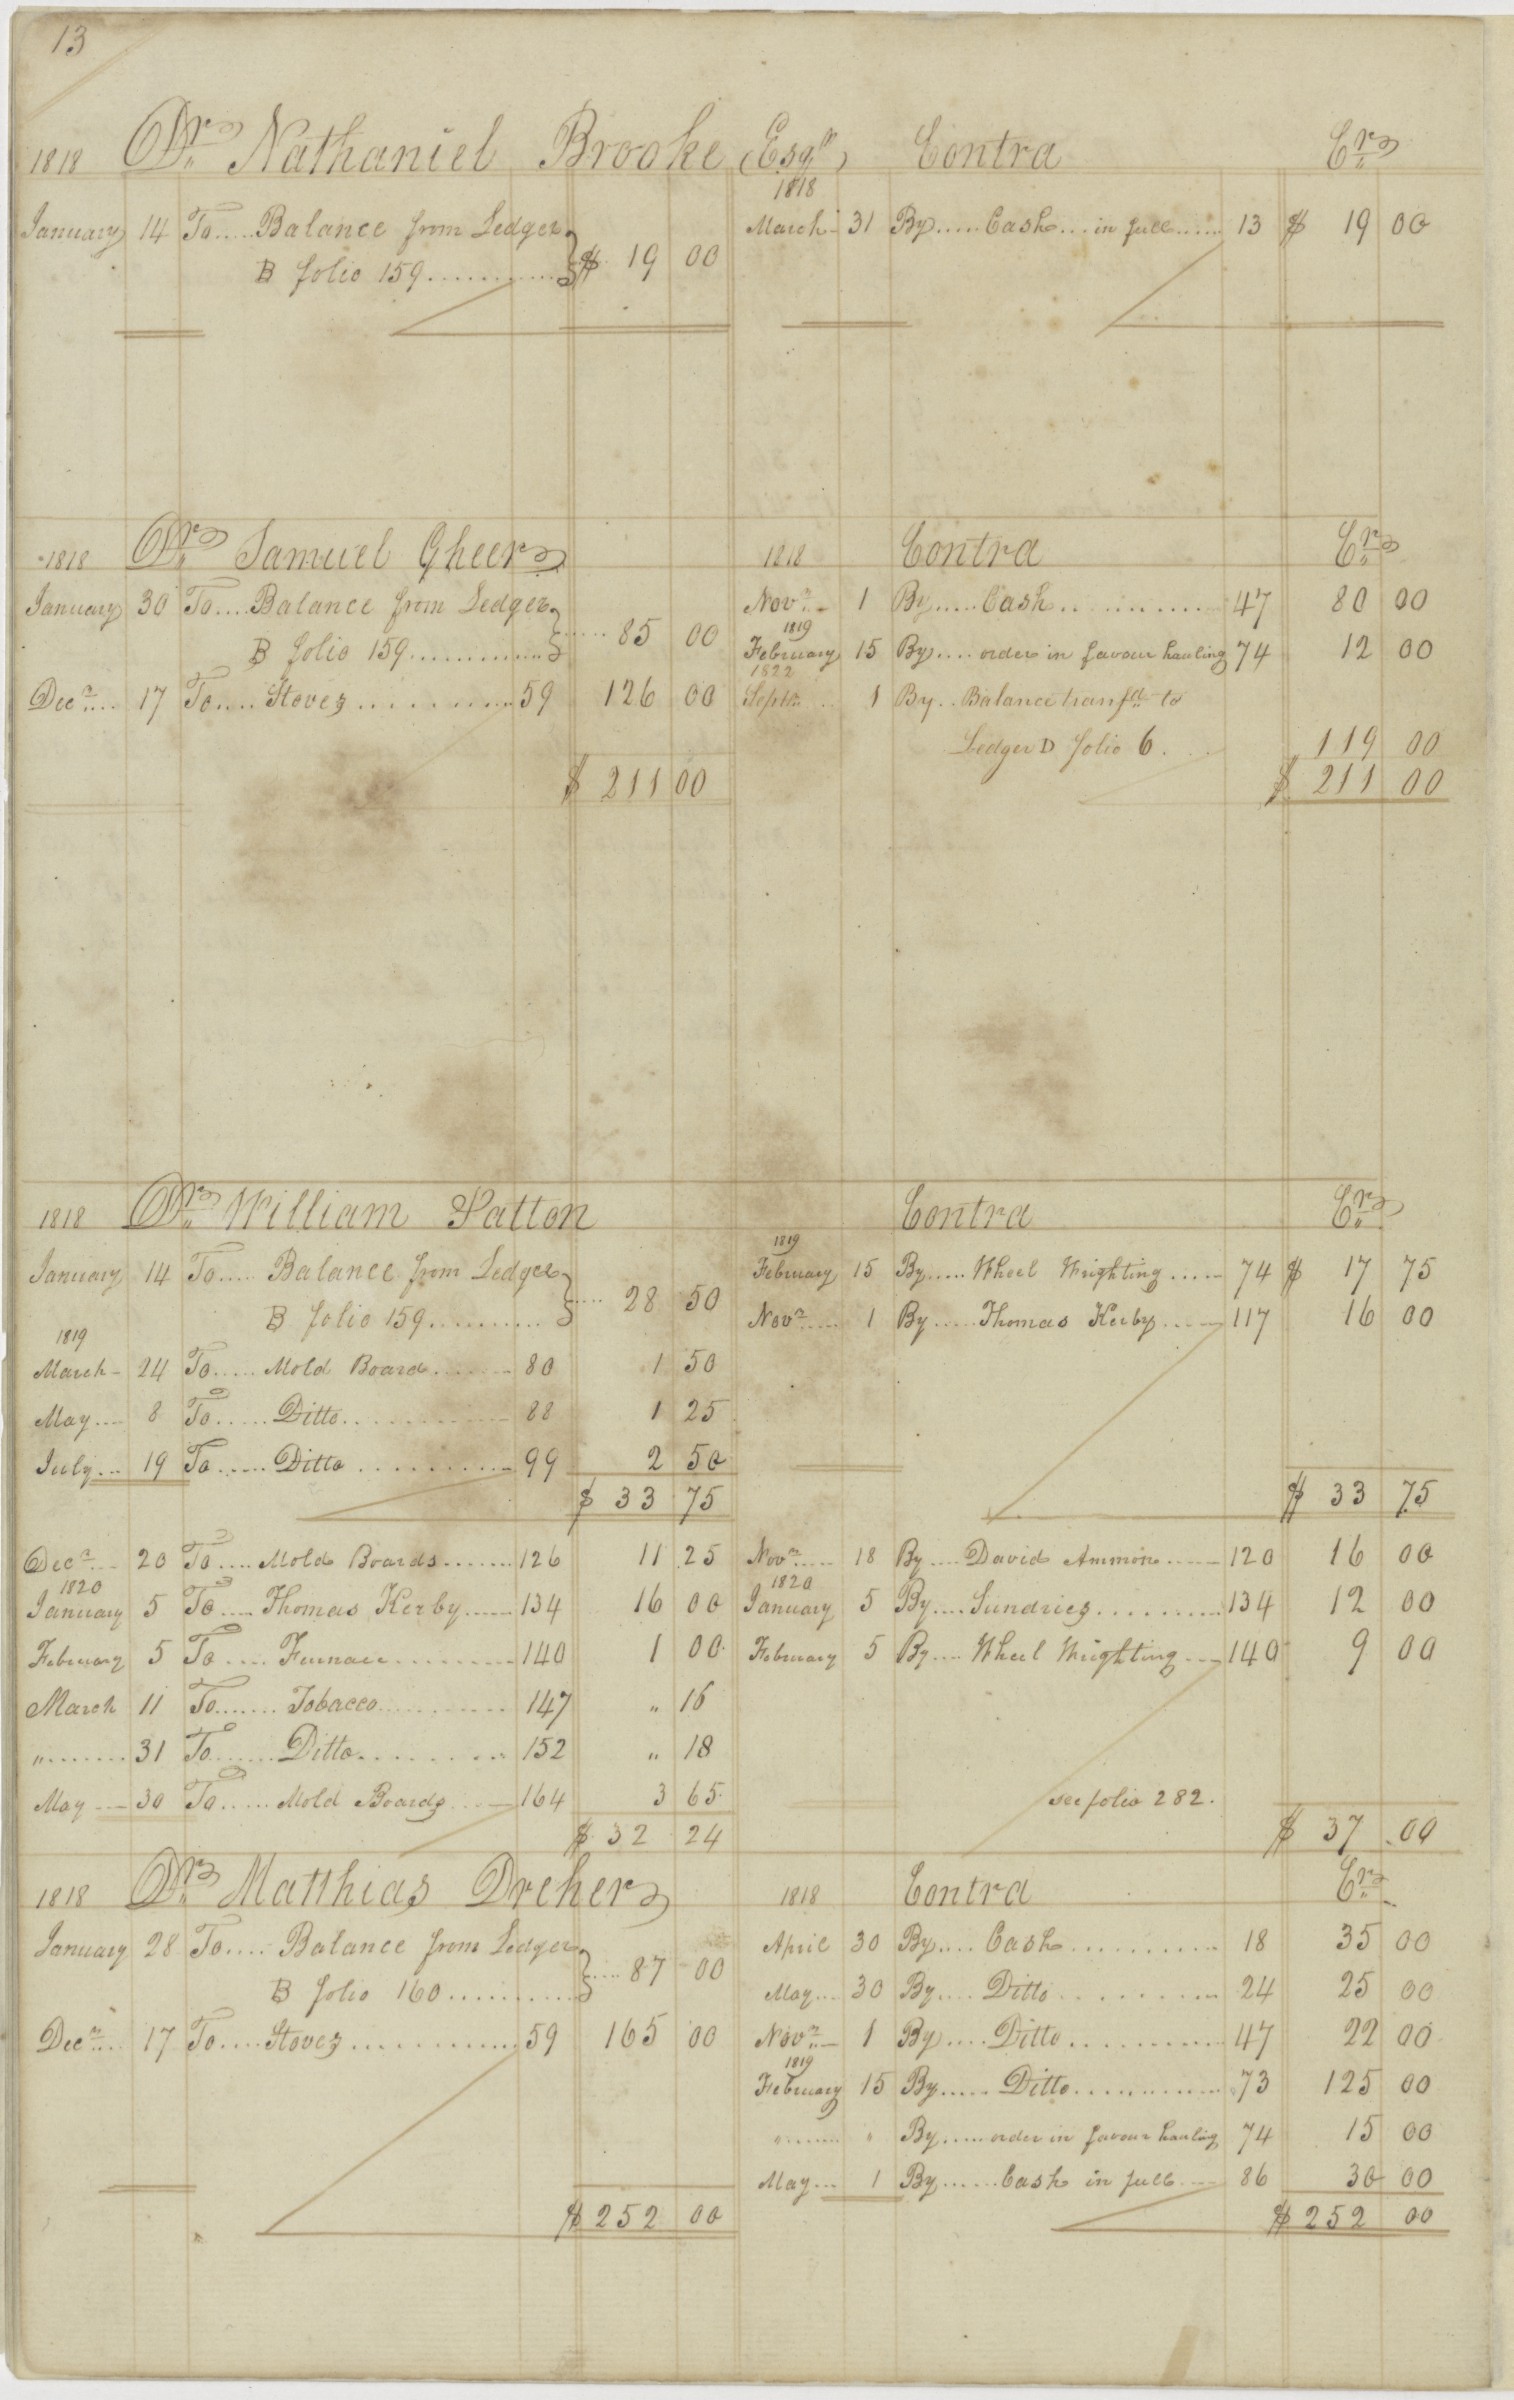 13
1818 Dr. Nathaniel Brooke Esqr. Contra Cr.
1818
January 14 To.....Balance from Ledger March 31 By.....Cash...in full...... 13 $ 19 00
B folio 159............ $ 19 00
1818 Dr. Samuel Gheer 1818 Contra Cr.
January 30 To....Balance from Ledger Novr. 1 By.....Cash............ 47 80 00
B folio 159............ 85 00
1819
February 15 By....order in favour hauling 74 12 00
1822
Decr. 17 To....Stoves..........59 126 00 Septr. 1 By..Balance transfd. to
Ledger D folio 6. 119 00
$ 211 00 $ 211 00
1818 Dr. William Patton Contra Cr.
1819
January 14 To.....Balance from Ledger February 15 By.....Wheel Wrighting..... 74 $ 17 75
B folio 159.......... 28 50 Novr. 1 By.....Thomas Kerby..... 117 16 00
1819
March 24 To.....Mold Board....... 80 1 50
May 8 To......Ditto............ 88 1 25
July 19 To......Ditto........... 99 2 50
$ 33 75 $ 33 75
Decr. 20 To....Mold Boards.......126 11 25 Novr. 18 By....David Ammon......120 16 00
1820 1820
January 5 To....Thomas Kerby.....134 16 00 January 5 By....Sundries.........134 12 00
February 5 To....Furnace.........140 1 00 February 5 By....Wheel Wrighting...140 9 00
March 11 To.......Tobacco.......... 147 " 16
"........ 31 To......Ditto......... 152 " 18
May 30 To......Mold Boards.....164 3 65
see folio 282.
$ 32 24 $ 37 00
1818 Dr. Matthias Dreher 1818 Contra Cr.
January 28 To....Balance from Ledger April 30 By....Cash.......... 18 35 00
B folio 160........... 87 00 May 30 By....Ditto.......... 24 25 00
Decr. 17 To....Stoves............59 165 00 Novr. 1 By....Ditto.......... 47 22 00
1819
February 15 By.....Ditto............ 73 125 00
"....... " By.....order in favour hauling 74 15 00
May 1 By......Cash in full.... 86 30 00
$ 252 00 $ 252 00